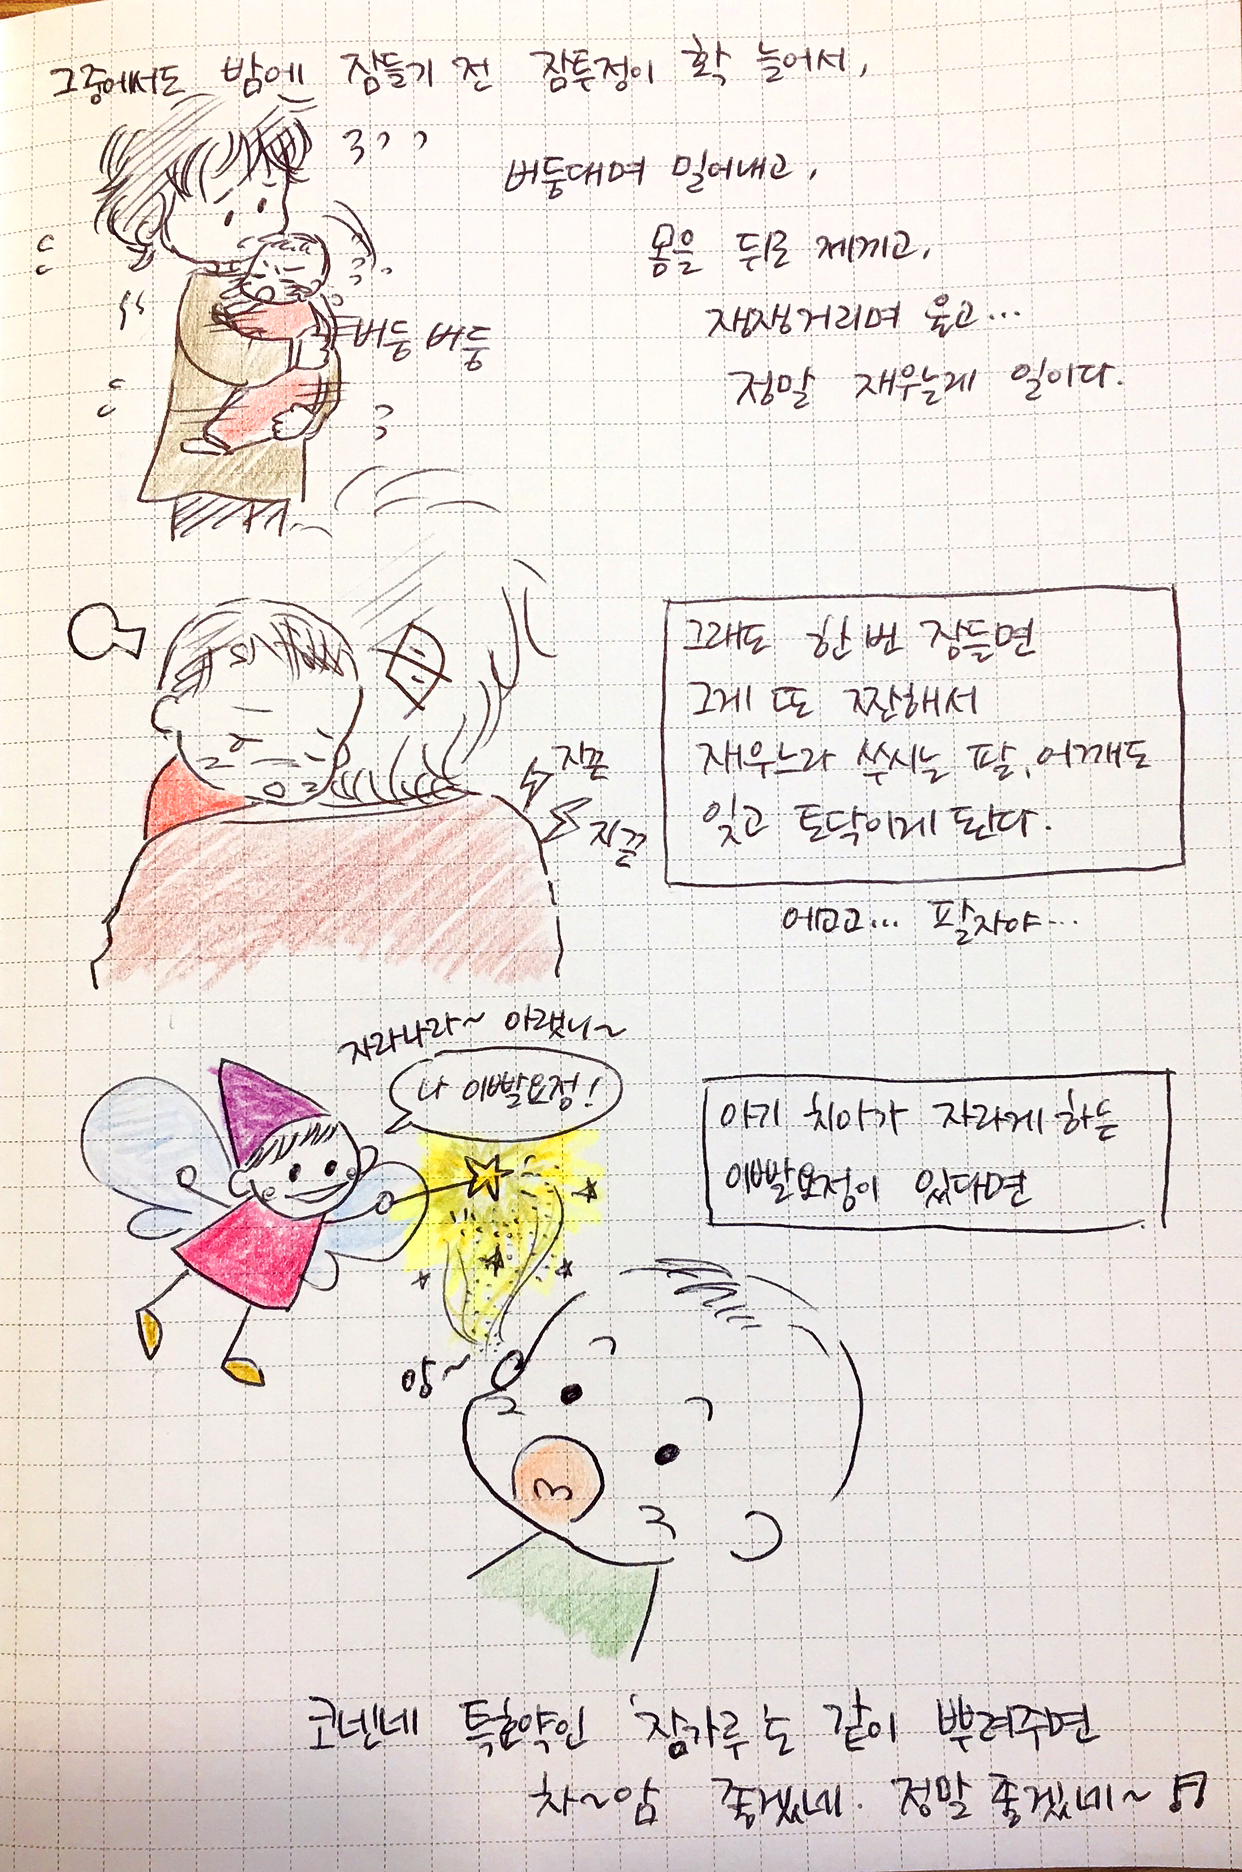 그중에서도 밤에 잠들기 전 잠투정이 확 늘어서,
버둥대며 밀어내고,
몸을 뒤로 제끼고,
쟁쟁거리며 울고...
정말 재우는게 일이다.
버둥 버둥
그래도 한번 잠들면
그게 또 짠해서
재우느라 쑤시는 팔, 어깨도
잊고 토닥이게 된다.
지끈
지끈
에고고... 팔자야...
자라나라~ 아랫니~
나 이빨요정!
아기 치아가 자라게 하는
이빨요정이 있다면
앙~
코넨네 특효약인 '잠가루'도 같이 뿌려주면
차~암 좋겠네. 정말 좋겠네~♬